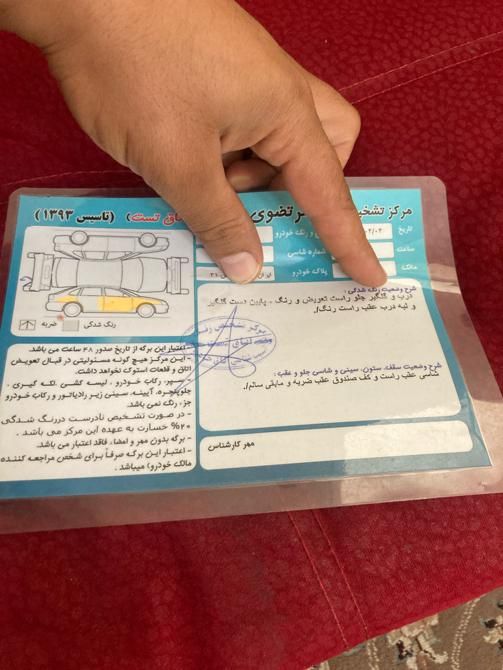 مرکز تشخیص
تضوی
تست) (تاسیس ۱۳۹۳)
تاریخ
رنگ خودرو
ساعت
شماره شاسی
مالک
پلاک خودرو
ایران
رنگ شدگی
ضربه
شرح وضعیت رنگ شدگی:
درب و گلگیر جلو راست تعویض و رنگ - پایین دست گلگیر
و لبه درب عقب راست رنگ/.
شرح وضعیت سقف، ستون، سینی و شاسی جلو و عقب:
شاسی عقب راست و کف صندوق عقب ضربه و مابقی سالم/.
مهر کارشناس
-اعتبار این برگه از تاریخ صدور ۴۸ ساعت می باشد.
- این مرکز هیچ گونه مسئولیتی در قبال تعویض
اتاق و قطعات استوک نخواهد داشت.
- سپر، رکاب خودرو، لیسه کشی، لکه گیری،
جلوپنجره، آیینه، سینی زیر رادیاتور و رکاب خودرو
جزء رنگ نمی باشد.
- در صورت تشخیص نادرست در رنگ شدگی
۲۰% خسارت به عهده این مرکز می باشد.
- برگه بدون مهر و امضاء فاقد اعتبار می باشد.
- اعتبار این برگه صرفاً برای شخص مراجعه کننده
(مالک خودرو) میباشد.